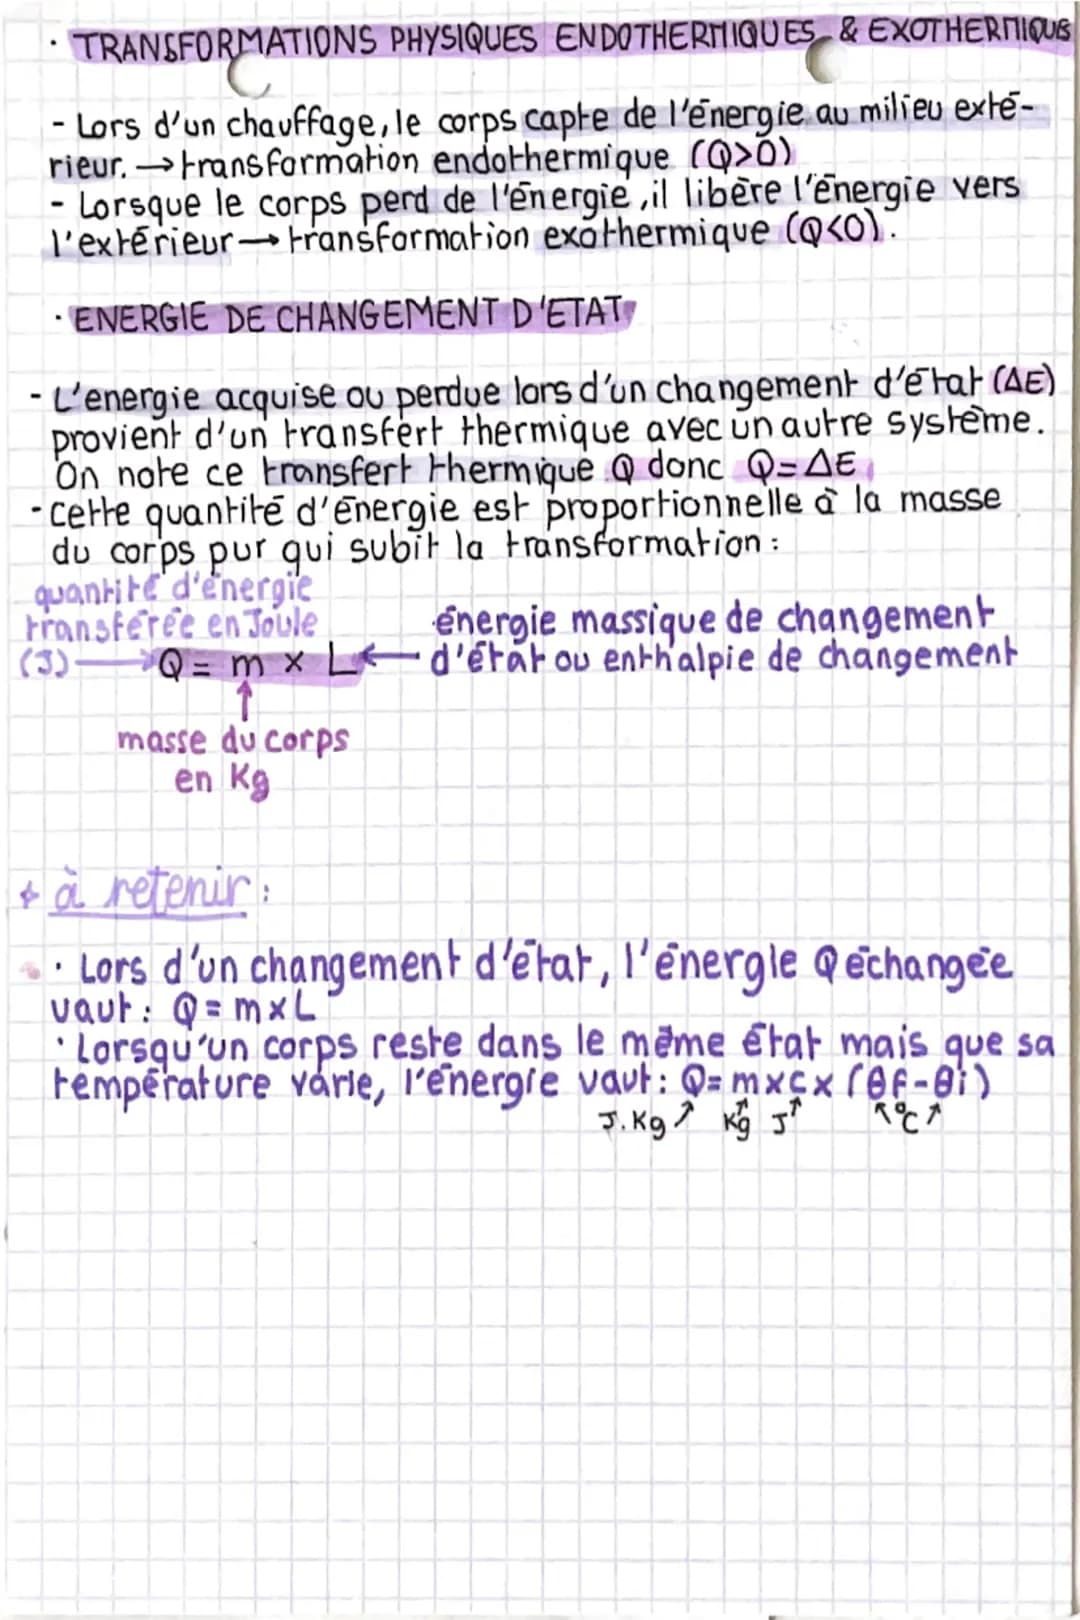 · TRANSFORMATIONS PHYSIQUES ENDOTHERMIQUES & EXOTHERMIQUES
- Lors d'un chauffage, le corps capte de l'énergie au milieu exté-
rieur. → transformation endothermique (Q>0)
- Lorsque le corps perd de l'énergie, il libère l'énergie vers
l'extérieur → transformation exothermique (Q<0).
· ENERGIE DE CHANGEMENT D'ETAT
- L'energie acquise ou perdue lors d'un changement d'état (ΔE)
provient d'un transfert thermique avec un autre système.
On note ce transfert thermique Q donc Q=ΔE
- cette quantité d'énergie est proportionnelle à la masse
du corps pur qui subit la transformation :
quantité d'énergie
transférée en Joule
(J) → Q = m × L ← énergie massique de changement
d'état ou enthalpie de changement
↑
masse du corps
en Kg
à retenir :
· Lors d'un changement d'état, l'énergie Q échangée
vaut : Q = m x L
· Lorsqu'un corps reste dans le même état mais que sa
température varie, l'énergie vaut : Q = m x c x (θf - θi)
J.Kg ↗ Kg ↗ J ↑ ↖ °C ↗